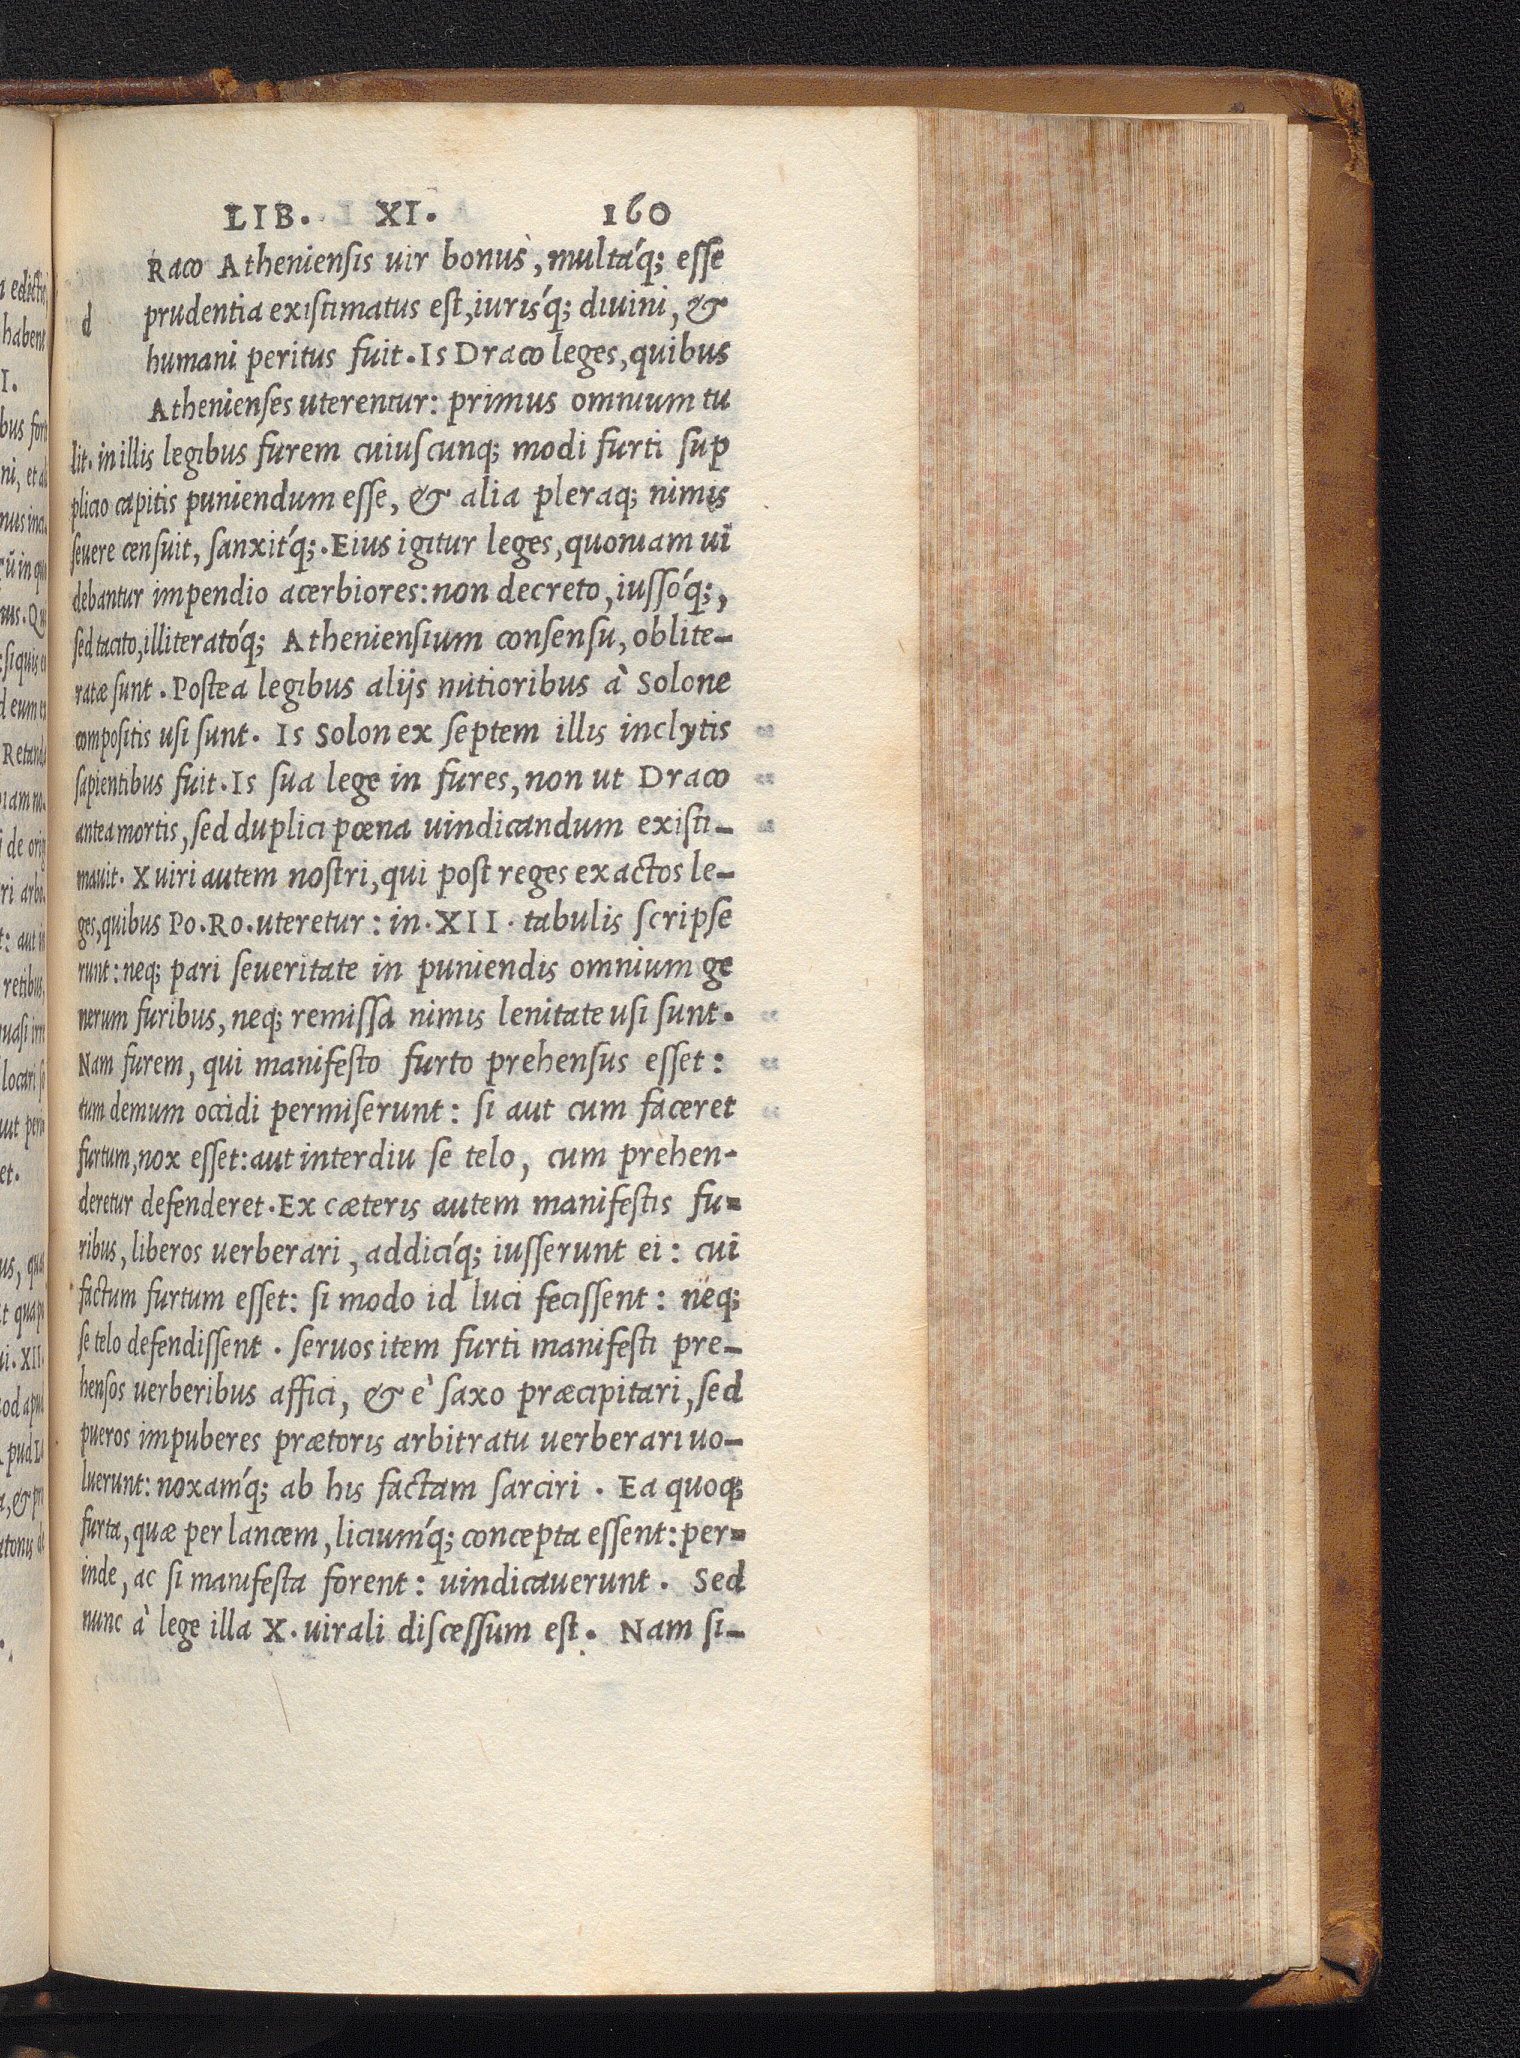 LIB. XI. 160
Raco Atheniensis uir bonus, multáq; esse
d prudentia existimatus est, iurisq́; diuini, &
humani peritus fuit. Is Draco leges, quibus
Athenienses uterentur: primus omnium tu
lit. in illis legibus furem cuiuscunq; modi furti sup
plicio capitis puniendum esse, & alia pleraq; nimis
seuere censuit, sanxitq́;. Eius igitur leges, quoniam ui
debantur impendio acerbiores: non decreto, iussóq;,
sed tacito, illiteratóq; Atheniensium consensu, oblite-
ratæ sunt. Postea legibus alijs mitioribus à Solone
compositis usi sunt. Is Solon ex septem illis inclytis
sapientibus fuit. Is sua lege in fures, non ut Draco
antea mortis, sed duplici pœna uindicandum existi-
mauit. Xuiri autem nostri, qui post reges exactos le-
ges, quibus Po. Ro. uteretur: in. XII. tabulis scripse
runt: neq; pari seueritate in puniendis omnium ge
nerum furibus, neq; remissa nimis lenitate usi sunt.
Nam furem, qui manifesto furto prehensus esset:
tum demum occidi permiserunt: si aut cum faceret
furtum, nox esset: aut interdiu se telo, cum prehen-
deretur defenderet. Ex cæteris autem manifestis fu-
ribus, liberos uerberari, addicíq; iusserunt ei: cui
factum furtum esset: si modo id luci fecissent: neq;
se telo defendissent. seruos item furti manifesti pre-
hensos uerberibus affici, & è saxo præcipitari, sed
pueros impuberes prætoris arbitratu uerberari uo-
luerunt: noxamq́; ab his factam sarciri. Ea quoq;
furta, quæ per lancem, liciumq́; concepta essent: per-
inde, ac si manifesta forent: uindicauerunt. Sed
nunc à lege illa X. uirali discessum est. Nam si-